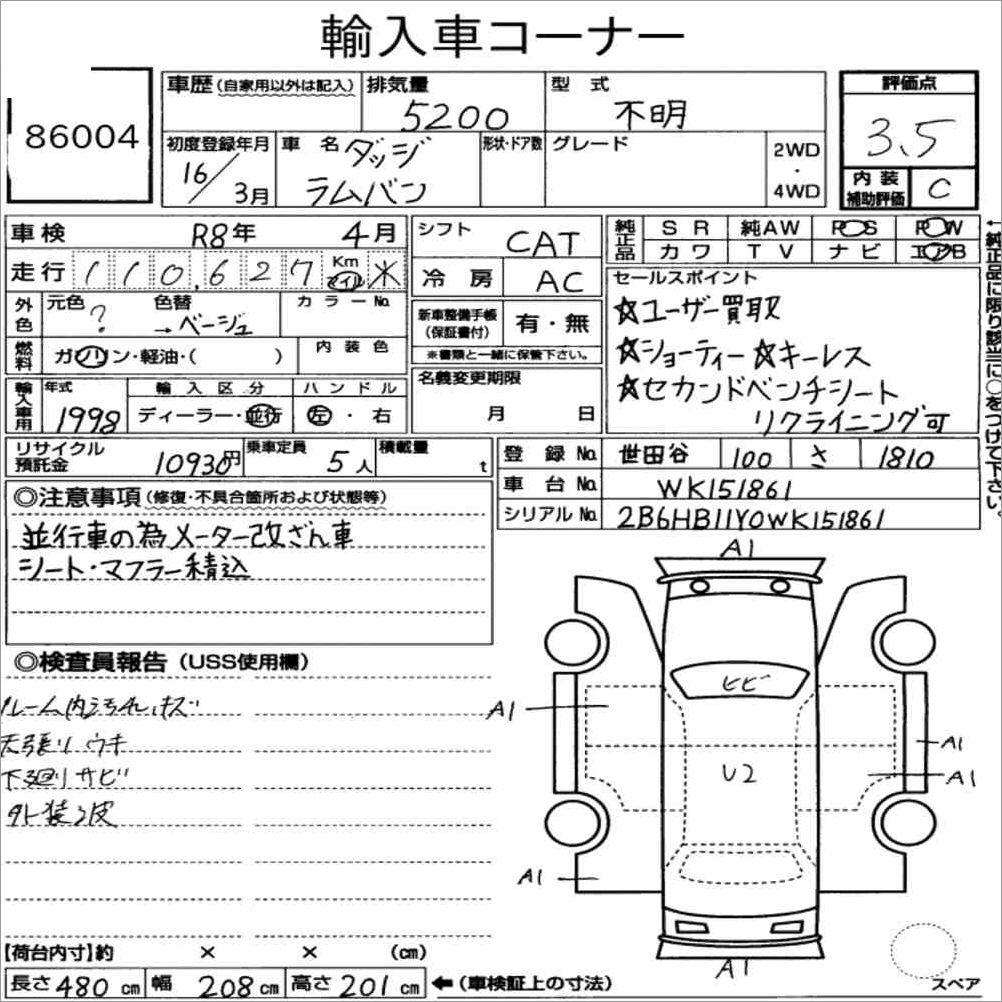 輸入車コーナー
86004
車歴(自家用以外は記入)
排気量
5200
型 式
不明
評価点
3.5
初度登録年月
16/3月
車 名
ダッジ
ラムバン
形状・ドア数
グレード
2WD
・
4WD
内 装
補助評価
C
車検 R8年 4月
シフト CAT
純正品
S R 純AW P S P W
カ ワ T V ナ ビ エアB
走行 110,627 Km マイル ※
冷 房 AC
セールスポイント
☆ユーザー買取
☆ショーティー ☆キーレス
☆セカンドベンチシート
リクライニング可
←純正品に限り該当に○をつけて下さい。
外色
元色 ?
色替
→ベージュ
カ ラ ー No.
新車整備手帳
(保証書付)
有・無
※書類と一緒に保管下さい。
燃料
ガソリン・軽油・( )
内 装 色
名義変更期限
月 日
輸入車用
年式
1998
輸 入 区 分
ディーラー・並行
ハ ン ド ル
左・右
リサイクル
預託金
10930円
乗車定員
5人
積載量
t
登 録 No. 世田谷 100 さ 1810
車 台 No. WK151861
シリアル No. 2B6HB11Y0WK151861
◎注意事項(修復・不具合箇所および状態等)
並行車の為メーター改ざん車
シート・マフラー積込
◎検査員報告(USS使用欄)
ルーム内汚れ.キズ
天張りウキ
下廻りサビ
外装2皮
A1
ヒビ
A1
A1
U2
A1
A1
A1
スペア
【荷台内寸】約 × × (cm)
長さ 480 cm 幅 208 cm 高さ 201 cm ←(車検証上の寸法)